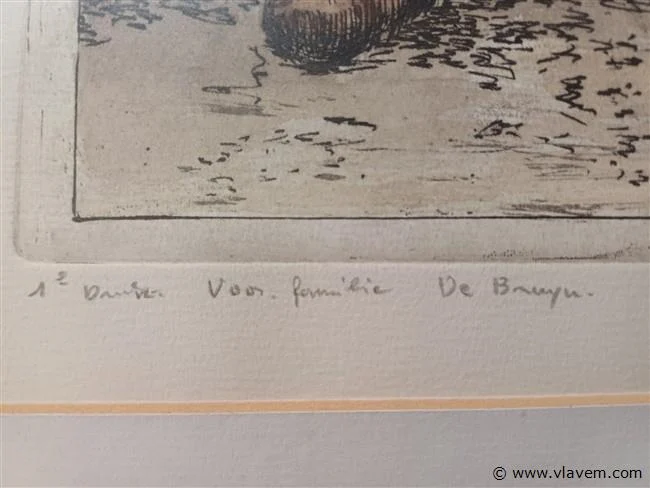 1e Druk. Voor. familie De Bruyn.
© www.vlavem.com